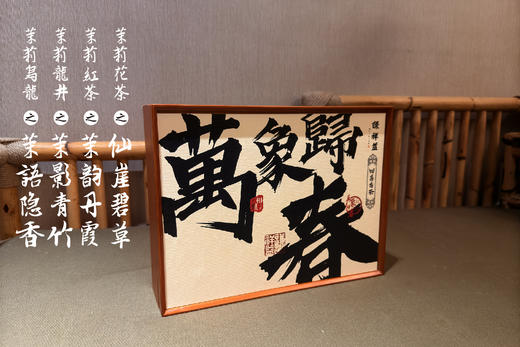 茉莉花茶之仙崖碧草
茉莉紅茶之茉韵丹霞
茉莉龍井之茉影青竹
茉莉烏龍之茉語隐香
萬象歸春